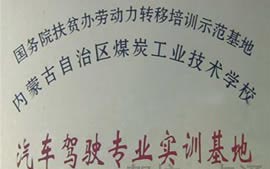 国务院扶贫办劳动力转移培训示范基地
内蒙古自治区煤炭工业技术学校
汽车驾驶专业实训基地